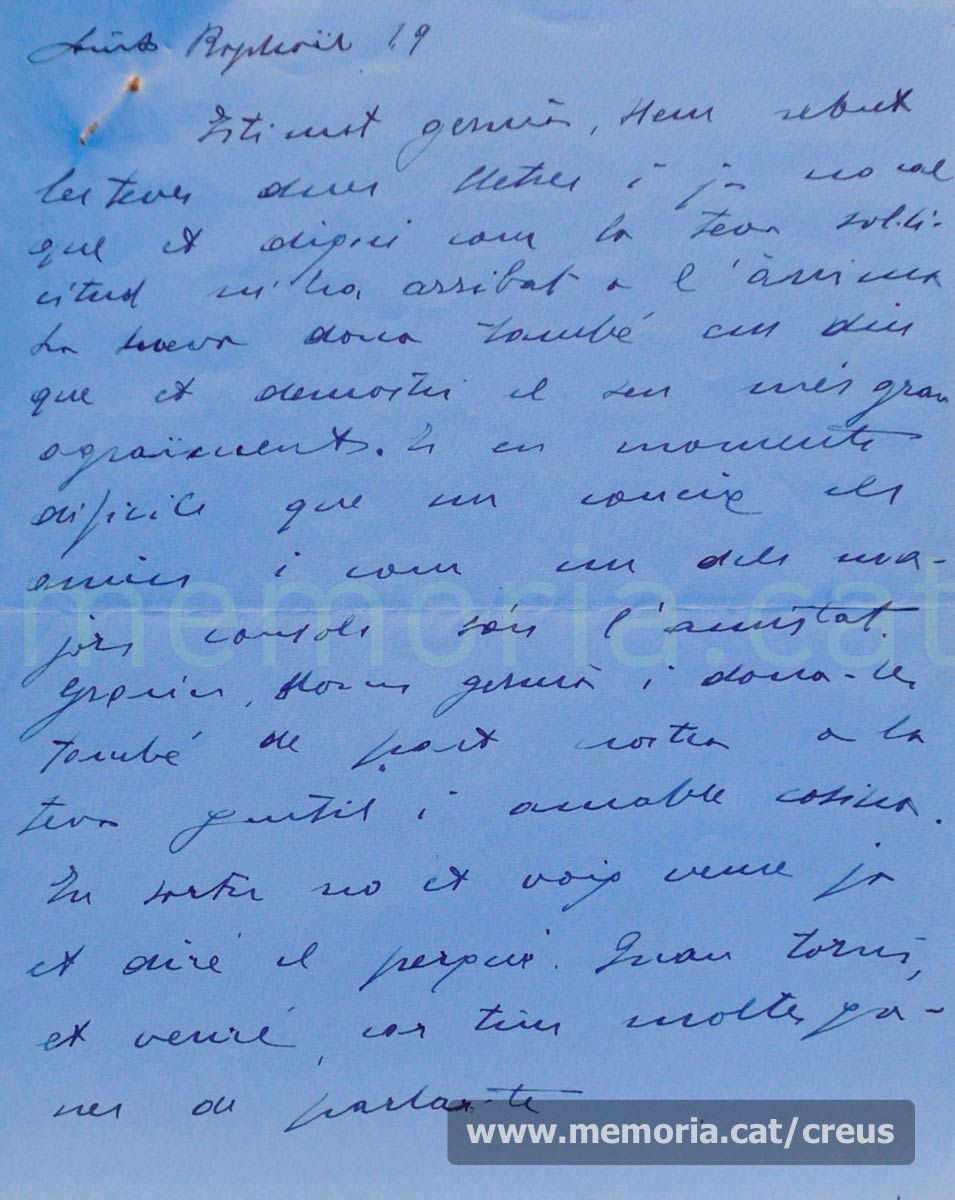 Saint Raphaël 19
Estimat germà, Hem rebut
les teves dues lletres i ja no cal
que et digui com la teva sol·li-
citud m'ha arribat a l'ànima
La meva dona també em diu
que et demostri el seu més gran
agraïment. És en moments
difícils que un coneix els
amics i com un dels ma-
jors consols són l'amistat.
Gràcies, germà i dona-les
també de part nostra a la
teva gentil i amable cosina.
En sortir no et vaig veure ja
et diré el perquè. Quan torni,
et veuré, car tinc moltes ga-
nes de parlar-te
memoria.cat
www.memoria.cat/creus